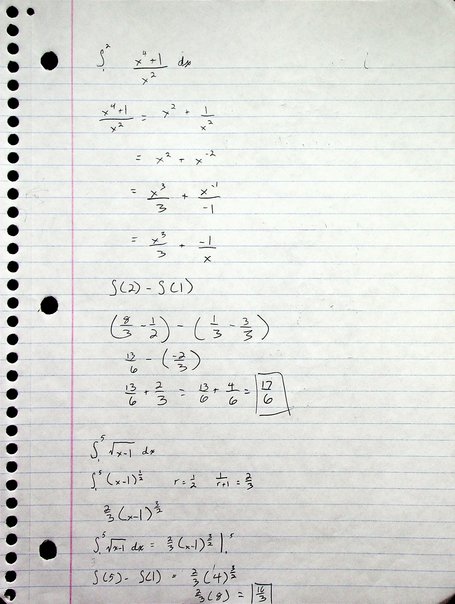 ∫₁² (x⁴+1)/x² dx
(x⁴+1)/x² = x² + 1/x²
= x² + x⁻²
= x³/3 + x⁻¹/-1
= x³/3 + -1/x
∫(2) - ∫(1)
(8/3 - 1/2) - (1/3 - 3/3)
13/6 - (-2/3)
13/6 + 2/3 = 13/6 + 4/6 = 17/6
∫₁⁵ √(x-1) dx
∫₁⁵ (x-1)^(1/2) r = 1/2 1/(r+1) = 2/3
2/3 (x-1)^(3/2)
∫₁⁵ √(x-1) dx = 2/3 (x-1)^(3/2) |₁⁵
∫(5) - ∫(1) = 2/3 (4)^(3/2)
2/3 (8) = 16/3